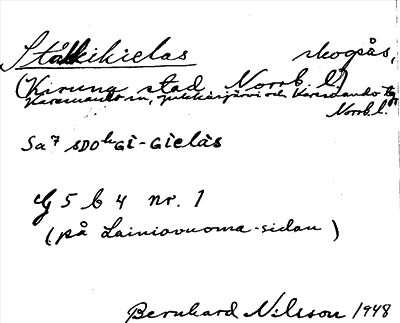 Ståkkikielas skogsås,
(Kiruna stad Norrb. l.)
Karesuando sn, Jukkasjärvi och Karesuando tg
Norrb. l.
Sa⁷ sDOkGi-Gielàs
G 5 b 4 nr. 1
(på Lainiovuoma-sidan)
Bernhard Nilsson 1948